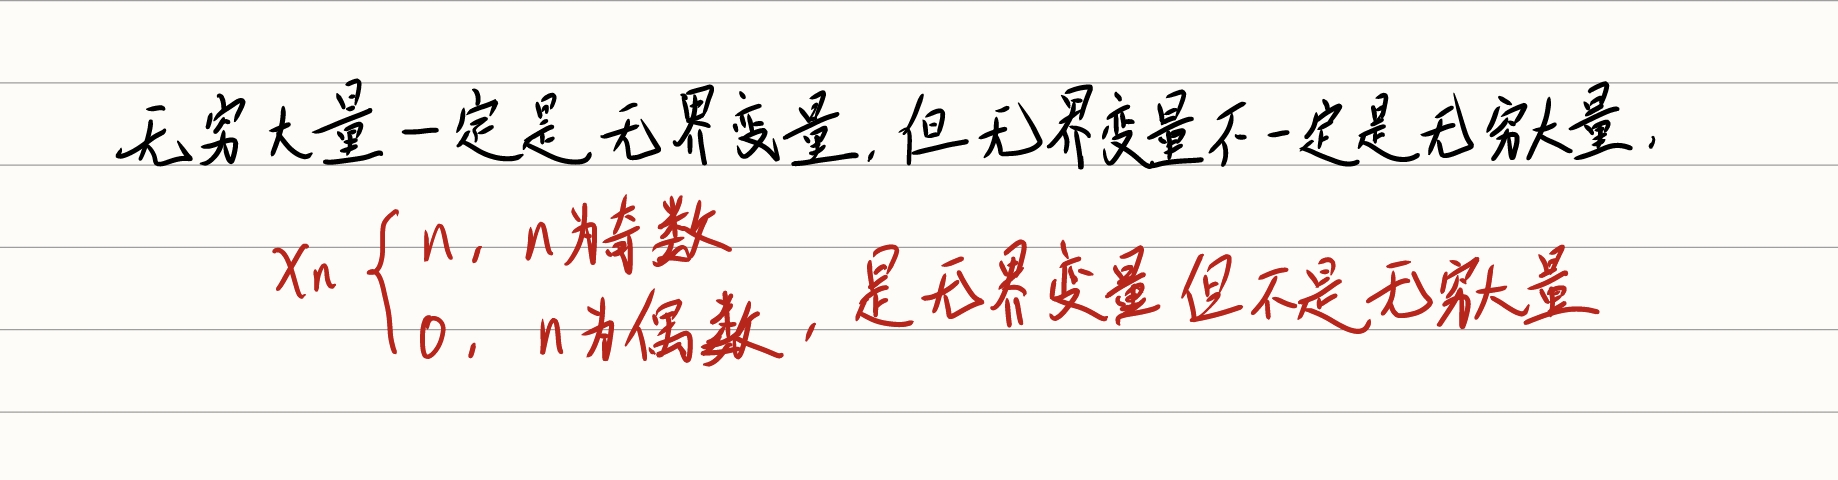 无穷大量一定是无界变量,但无界变量不一定是无穷大量,
xn { n, n为奇数
0, n为偶数, 是无界变量但不是无穷大量